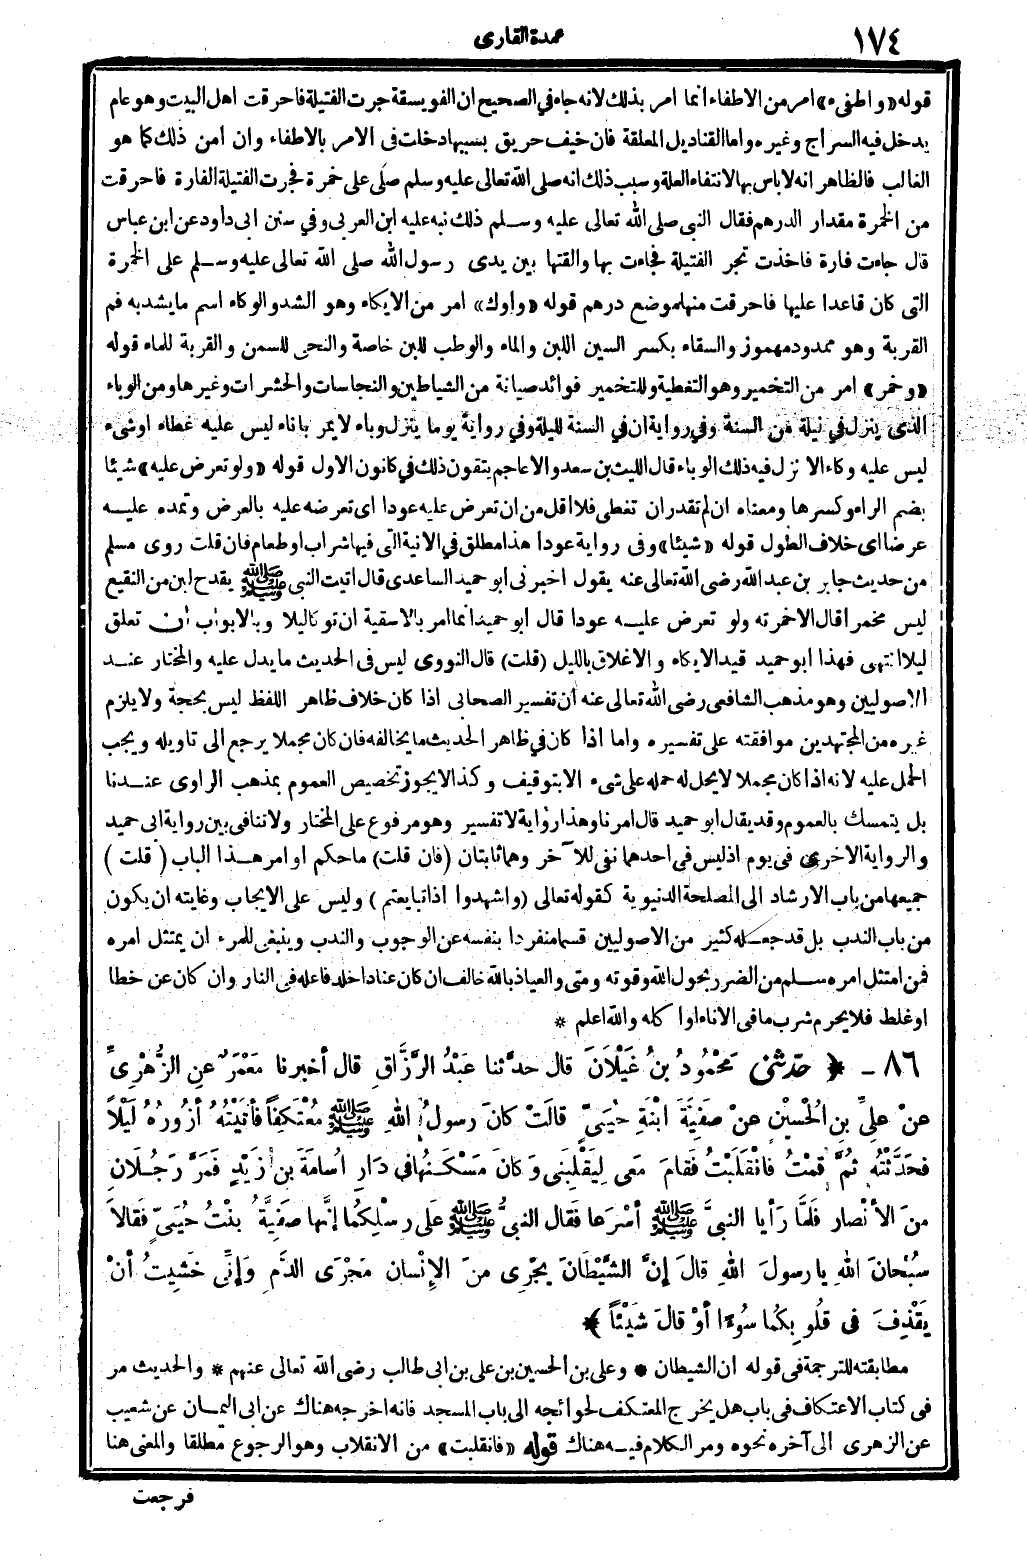 ١٧٤
عمدة القارى
قوله «واطفىء» امر من الاطفاء انما امر بذلك لانه جاء في الصحيح ان الفويسقة جرت الفتيلة فاحرقت اهل البيت وهو عام
يدخل فيه السراج وغيره واما القناديل المعلقة فان خيف حريق بسببها دخلت فى الامر بالاطفاء وان أمن ذلك كما هو
الغالب فالظاهر انه لا باس بها لانتفاء العلة وسبب ذلك انه صلى الله تعالى عليه وسلم صلى على خمرة فجرت الفتيلة الفارة فاحرقت
من الخمرة مقدار الدرهم فقال النبي صلى الله تعالى عليه وسلم ذلك نبه عليه ابن العربى وفي سنن ابى داود عن ابن عباس
قال جاءت فارة فاخذت تجر الفتيلة فجاءت بها والقتها بين يدى رسول الله صلى الله تعالى عليه وسلم على الخمرة
التى كان قاعدا عليها فاحرقت منها موضع درهم قوله «واوك» امر من الايكاء وهو الشد والوكاء اسم ما يشد به فم
القربة وهو ممدود مهموز والسقاء بكسر السين اللبن والماء والوطب للبن خاصة والنحى للسمن والقربة للماء قوله
«وخمر» امر من التخمير وهو التغطية وللتخمير فوائد صيانة من الشياطين والنجاسات والحشرات وغيرها ومن الوباء
الذى ينزل في ليلة من السنة وفي رواية ان في السنة لليلة وفي رواية يوما ينزل وباء لا يمر باناء ليس عليه غطاء او شىء
ليس عليه وكاء الا نزل فيه ذلك الوباء قال الليث بن سعد والاعاجم يتقون ذلك في كانون الاول قوله «ولو تعرض عليه» شيئا
بضم الراء وكسرها ومعناه ان لم تقدر ان تغطى فلا اقل من ان تعرض عليه عودا اى تعرضه عليه بالعرض وتمده عليه
عرضا اى خلاف الطول قوله «شيئا» وفى رواية عودا هذا مطلق في الانية التى فيها شراب او طعام فان قلت روى مسلم
من حديث جابر بن عبد الله رضى الله تعالى عنه يقول اخبرنى ابو حميد الساعدى قال اتيت النبى ﷺ بقدح لبن من النقيع
ليس مخمرا قال الا خمرته ولو تعرض عليه عودا قال ابو حميد انما امر بالاسقية ان توكا ليلا وبالابواب أن تغلق
ليلا انتهى فهذا ابو حميد قيد الايكاء والاغلاق بالليل (قلت) قال النووى ليس فى الحديث ما يدل عليه والمختار عند
الاصوليين وهو مذهب الشافعى رضى الله تعالى عنه أن تفسير الصحابى اذا كان خلاف ظاهر اللفظ ليس بحجة ولا يلزم
غيره من المجتهدين موافقته على تفسيره واما اذا كان في ظاهر الحديث ما يخالفه فان كان مجملا يرجع الى تاويله ويجب
الحمل عليه لانه اذا كان مجملا لا يحل له حمله على شىء الا بتوقيف وكذا لا يجوز تخصيص العموم بمذهب الراوى عندنا
بل يتمسك بالعموم وقد يقال ابو حميد قال امرنا وهذا رواية لا تفسير وهو مرفوع على المختار ولا تنافى بين رواية ابى حميد
والرواية الاخرى فى يوم اذ ليس فى احدهما نفى للآخر وهما ثابتان (فان قلت) ما حكم اوامر هذا الباب (قلت)
جميعها من باب الارشاد الى المصلحة الدنيوية كقوله تعالى (واشهدوا اذا تبايعتم) وليس على الايجاب وغايته ان يكون
من باب الندب بل قد جعله كثير من الاصوليين قسما منفردا بنفسه عن الوجوب والندب وينبغى للمرء ان يمتثل امره
فمن امتثل امره سلم من الضرر بحول الله وقوته ومتى والعياذ بالله خالف ان كان عنادا خلد فاعله فى النار وان كان عن خطا
او غلط فلا يحرم شرب ما فى الاناء او اكله والله اعلم *
٨٦ - ﴿ حدثنى مَحْمُودُ بنُ غَيْلَانَ قال حدّثنا عَبْدُ الرَّزَّاقِ قال أخبرنا مَعْمَرٌ عنِ الزُّهْرِىِّ
عنْ علِىِّ بنِ الحُسَيْنِ عنْ صَفِيَّةَ ابْنَةِ حُيَىٍّ قالَتْ كانَ رسولُ اللهِ ﷺ مُعْتَكِفاً فأتَيْتُهُ أزُورُهُ لَيْلاً
فحَدَّثْتُهُ ثُمَّ قُمْتُ فانْقَلَبْتُ فقامَ مَعِى لِيَقْلِبَنى وَكانَ مَسْكَنُها فى دَارِ اُسامَةَ بنِ زَيْدٍ فَمَرَّ رَجُلَانِ
منَ الأنْصارِ فلَمَّا رَأيا النبىَّ ﷺ أسْرَعا فقال النبىُّ ﷺ علَى رِسْلِكُما إنَّها صفيَّةُ بنْتُ حُيَىٍّ فقالاَ
سُبْحانَ اللهِ يا رسولَ اللهِ قالَ إنَّ الشَّيْطَانَ يَجْرِى منَ الإنْسانِ مَجْرَى الدَّمِ وَإنِّى خَشِيتُ أنْ
يَقْذِفَ فى قُلُوبِكُما سُوءًا أوْ قالَ شَيْئاً ﴾
مطابقته للترجمة فى قوله ان الشيطان * وعلى بن الحسين بن على بن ابى طالب رضى الله تعالى عنهم * والحديث مر
فى كتاب الاعتكاف فى باب هل يخرج المعتكف لحوائجه الى باب المسجد فانه اخرجه هناك عن ابى اليمان عن شعيب
عن الزهرى الى آخره نحوه ومر الكلام فيه هناك قوله «فانقلبت» من الانقلاب وهو الرجوع مطلقا والمعنى هنا
فرجعت